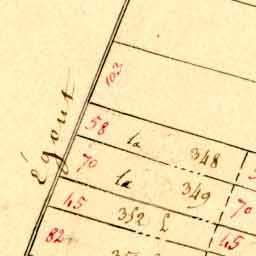 Égout
103
58 la 348
70 la 349
70
45 352 L
45
82